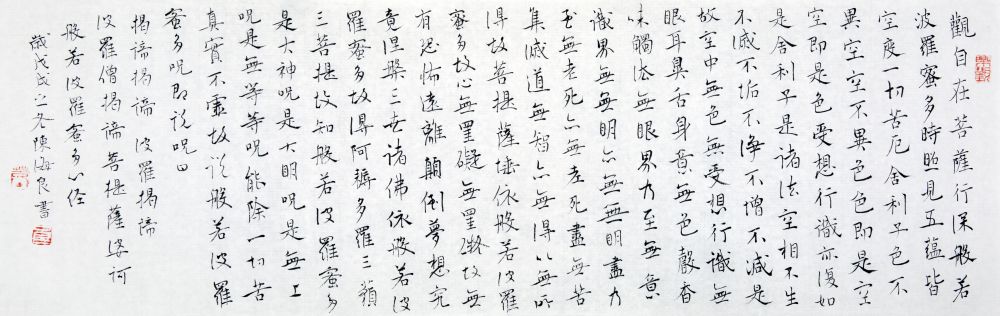 觀自在菩薩行深般若
波羅蜜多時照見五蘊皆
空度一切苦厄舍利子色不
異空空不異色色即是空
空即是色受想行識亦復如
是舍利子是諸法空相不生
不滅不垢不淨不增不減是
故空中無色無受想行識無
眼耳鼻舌身意無色聲香
味觸法無眼界乃至無意
識界無無明亦無無明盡乃
至無老死亦無老死盡無苦
集滅道無智亦無得以無所
得故菩提薩埵依般若波羅
蜜多故心無罣礙無罣礙故無
有恐怖遠離顛倒夢想究
竟涅槃三世諸佛依般若波
羅蜜多故得阿耨多羅三藐
三菩提故知般若波羅蜜多
是大神咒是大明咒是無上
咒是無等等咒能除一切苦
真實不虛故說般若波羅
蜜多咒即說咒曰
揭諦揭諦 波羅揭諦
波羅僧揭諦菩提薩婆訶
般若波羅蜜多心經
歲戊戌之冬陳海良書